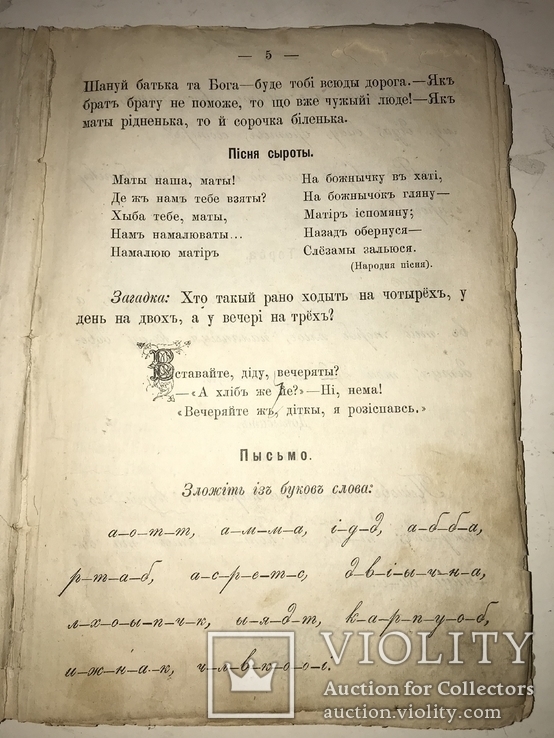 — 5 —
Шануй батька та Бога—буде тобі всюды дорога.—Якъ
братъ брату не поможе, то що вже чужыйі люде!—Якъ
маты рідненька, то й сорочка біленька.
Пісня сыроты.
Маты наша, маты!
Де жъ намъ тебе взяты?
Хыба тебе, маты,
Намъ намалюваты...
Намалюю матіръ
На божнычку въ хаті,
На божнычокъ гляну—
Матіръ іспомяну;
Назадъ обернуся—
Слёзамы зальюся.
(Народня пісня).
Загадка: Хто такый рано ходыть на чотырёхъ, у
день на двохъ, а у вечері на трёхъ?
Вставайте, діду, вечеряты?
—«А хлібъ же йе?»—Ні, нема!
«Вечеряйте жъ, діткы, я розіспавсь.»
Пысьмо.
Зложіть ізъ буковъ слова:
а-о-т-т, а-м-м-а, і-д-д, а-б-б-а,
р-т-а-б, а-с-р-е-т-с, д-в-і-ы-ч-н-а,
л-х-о-ы-п-ч-к, ы-я-д-т, к-а-р-п-у-о-б,
и-ж-н-а-к, ч-л-в-к-о-о-і.
VIOLITY
Auction for Collectors
auction.violity.com